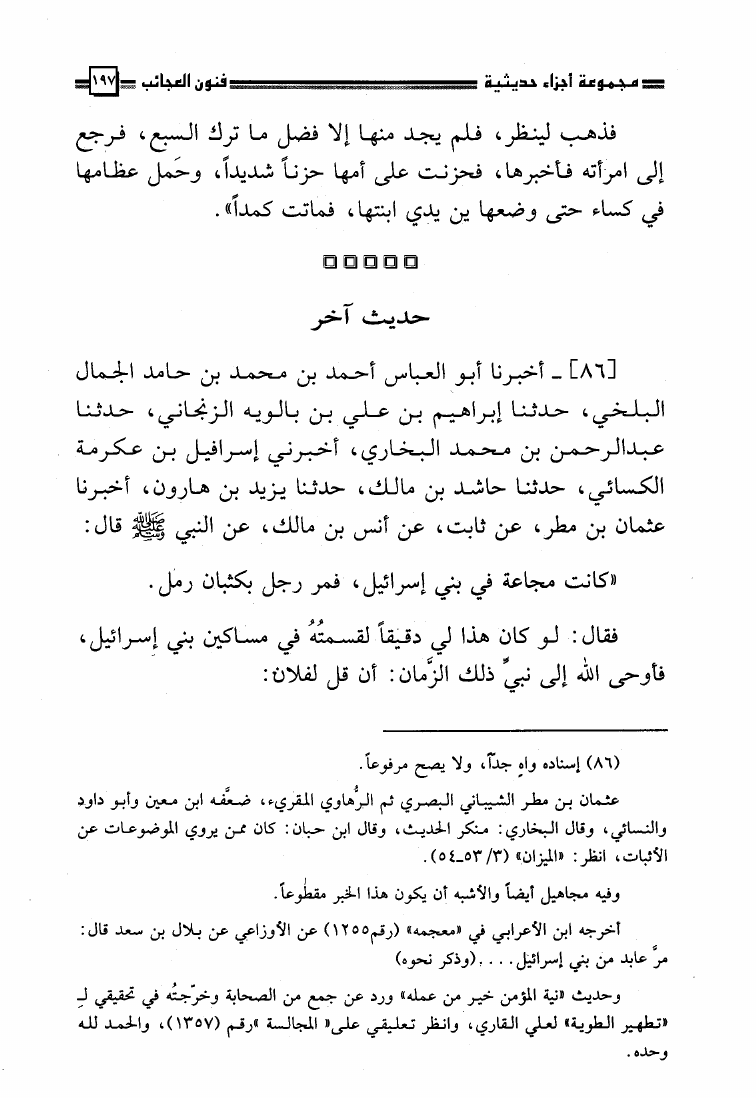 مجموعة أجزاء حديثية فنون العجائب ١٩٧
فذهب لينظر، فلم يجد منها إلا فضل ما ترك السبع، فرجع
إلى امرأته فأخبرها، فحزنت على أمها حزناً شديداً، وحَمل عظامها
في كساء حتى وضعها ين يدي ابنتها، فماتت كمداً».
حديث آخر
[٨٦] ـ أخبرنا أبو العباس أحمد بن محمد بن حامد الجمال
البلخي، حدثنا إبراهيم بن علي بن بالويه الزنجاني، حدثنا
عبدالرحمن بن محمد البخاري، أخبرني إسرافيل بن عكرمة
الكسائي، حدثنا حاشد بن مالك، حدثنا يزيد بن هارون، أخبرنا
عثمان بن مطر، عن ثابت، عن أنس بن مالك، عن النبي ﷺ قال:
«كانت مجاعة في بني إسرائيل، فمر رجل بكثبان رمل.
فقال: لو كان هذا لي دقيقاً لقسمتُهُ في مساكين بني إسرائيل،
فأوحى الله إلى نبيِّ ذلك الزَّمان: أن قل لفلان:
(٨٦) إسناده واهٍ جداً، ولا يصح مرفوعاً.
عثمان بن مطر الشيباني البصري ثم الرُّهاوي المقريء، ضعَّفه ابن معين وأبو داود
والنسائي، وقال البخاري: منكر الحديث، وقال ابن حبان: كان ممن يروي الموضوعات عن
الأثبات، انظر: «الميزان» (٣/ ٥٣ـ٥٤).
وفيه مجاهيل أيضاً والأشبه أن يكون هذا الخبر مقطوعاً.
أخرجه ابن الأعرابي في «معجمه» (رقم١٢٥٥) عن الأوزاعي عن بلال بن سعد قال:
مرَّ عابد من بني إسرائيل....(وذكر نحوه)
وحديث «نية المؤمن خير من عمله» ورد عن جمع من الصحابة وخرّجتُه في تحقيقي لـ
«تطهير الطوية» لعلي القاري، وانظر تعليقي على« المجالسة »رقم (١٣٥٧)، والحمد لله
وحده.